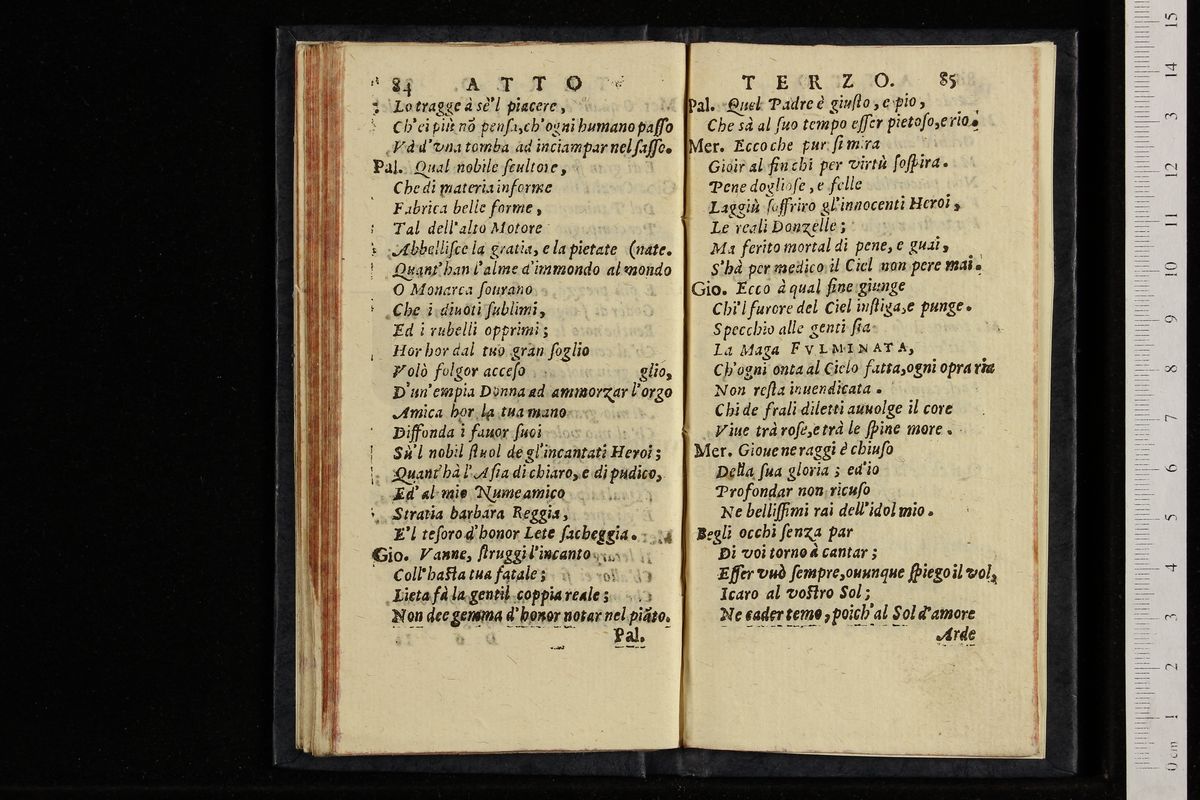 84 ATTO
Lo tragge à sè'l piacere,
Ch'ei più nō pensa,ch'ogni humano passo
Và d'vna tomba ad inciampar nel sasso.
Pal. Qual nobile scultore,
Che di materia informe
Fabrica belle forme,
Tal dell'alto Motore
Abbellisce la gratia, e la pietate (nate.
Quant'han l'alme d'immondo al mondo
O Monarca sourano
Che i diuoti sublimi,
Ed i rubelli opprimi;
Hor hor dal tuo gran soglio
Volò folgor acceso glio,
D'un'empia Donna ad ammorzar l'orgo
Amica hor la tua mano
Diffonda i fauor suoi
Sù'l nobil stuol de gl'incantati Heroi;
Quant'hà l'Asia di chiaro, e di pudico,
Ed'al mio Nume amico
Stratia barbara Reggia,
E'l tesoro d'honor Lete sacheggia.
Gio. Vanne, struggi l'incanto
Coll'hasta tua fatale;
Lieta fà la gentil coppia reale;
Non dee gemma d'honor notar nel piāto.
Pal.
TERZO. 85
Pal. Quel Padre è giusto, e pio,
Che sà al suo tempo esser pietoso,e rio.
Mer. Ecco che pur si mira
Gioir al fin chi per virtù sospira.
Pene dogliose, e felle
Laggiù soffriro gl'innocenti Heroi,
Le reali Donzelle;
Ma ferito mortal di pene, e guai,
S'hà per medico il Ciel non pere mai.
Gio. Ecco à qual fine giunge
Chi'l furore del Ciel instiga,e punge.
Specchio alle genti sia
La Maga FVLMINATA,
Ch'ogni onta al Cielo fatta,ogni opra ria
Non resta inuendicata.
Chi de frali diletti auuolge il core
Viue trà rose,e trà le spine more.
Mer. Gioue ne raggi è chiuso
Della sua gloria; ed'io
Profondar non ricuso
Ne bellissimi rai dell'idol mio.
Begli occhi senza par
Di voi torno à cantar;
Esser vuò sempre,ouunque spiego il vol,
Icaro al vostro Sol;
Ne cader temo, poich'al Sol d'amore
Arde